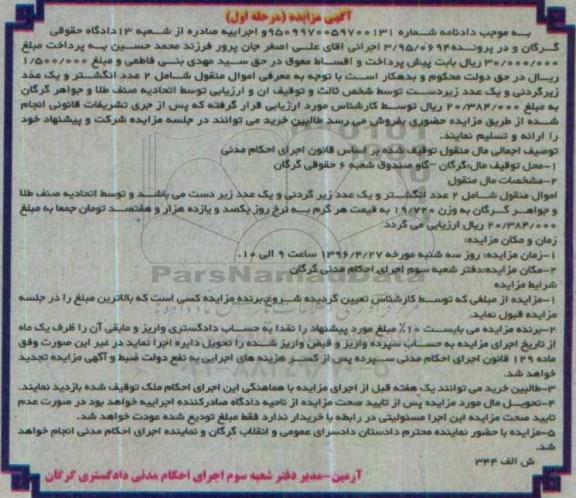 آگهی مزایده (مرحله اول)
به موجب دادنامه شماره 9509970059700131 و اجراییه صادره از شعبه 13دادگاه حقوقی
گرگان و در پرونده3/95/0694 اجرائی اقای علی اصغر جان پرور فرزند محمد حسین به پرداخت مبلغ
30/000/000 ریال بابت پیش پرداخت و اقساط معوق در حق سید مهدی بنی فاطمی و مبلغ 1/500/000
ریال در حق دولت محکوم و بدهکار است با توجه به معرفی اموال منقول شامل 2 عدد انگشتر و یک عدد
زیرگردنی و یک عدد زیردست توسط شخص ثالث و توقیف ان و ارزیابی توسط اتحادیه صنف طلا و جواهر گرگان
به مبلغ 20/384/000 ریال توسط کارشناس مورد ارزیابی قرار گرفته که پس از جری تشریفات قانونی انجام
شده از طریق مزایده حضوری بفروش می رسد طالبین خرید می توانند در جلسه مزایده شرکت و پیشنهاد خود
را ارائه و تسلیم نمایند.
توصیف اجمالی مال منقول توقیف شده بر اساس قانون اجرای احکام مدنی
1-محل توقیف مال:گرگان -گاو صندوق شعبه 6 حقوقی گرگان
2-مشخصات مال منقول
اموال منقول شامل 2 عدد انگشتر و یک عدد زیر گردنی و یک عدد زیر دست می باشد و توسط اتحادیه صنف طلا
و جواهر گرگان به وزن 19/720 به قیمت هر گرم به نرخ روز یکصد و یازده هزار و هفتصد تومان جمعا به مبلغ
20/384/000 ریال ارزیابی می گردد
زمان و مکان مزایده:
1-زمان مزایده: روز سه شنبه مورخه 1396/4/27 ساعت 9 الی 10.
2-مکان مزایده:دفتر شعبه سوم اجرای احکام مدنی گرگان
شرایط مزایده
1-مزایده از مبلغی که توسط کارشناس تعیین گردیده شروع،برنده مزایده کسی است که بالاترین مبلغ را در جلسه
مزایده قبول نماید.
2-برنده مزایده می بایست 10% مبلغ مورد پیشنهاد را نقدا به حساب دادگستری واریز و مابقی آن را ظرف یک ماه
از تاریخ اجرای مزایده به حساب سپرده واریز و قبض واریز شده را تحویل دایره اجرا نماید در غیر این صورت وفق
ماده 129 قانون اجرای احکام مدنی سپرده پس از کسر هزینه های اجرایی به نفع دولت ضبط و آگهی مزایده تجدید
خواهد شد.
3-طالبین خرید می توانند یک هفته قبل از اجرای مزایده با هماهنگی این اجرای احکام ملک توقیف شده بازدید نمایند.
4-تحویل مال مورد مزایده پس از تایید صحت مزایده از ناحیه دادگاه صادرکننده اجراییه خواهد بود در صورت عدم
تایید صحت مزایده این اجرا مسئولیتی در رابطه با خریدار ندارد فقط مبلغ تودیع شده عودت خواهد شد.
5-مزایده با حضور نماینده محترم دادستان دادسرای عمومی و انقلاب گرگان و نماینده اجرای احکام مدنی انجام خواهد
شد.
ش الف 344
آرمین-مدیر دفتر شعبه سوم اجرای احکام مدنی دادگستری گرگان
ParsNamadData